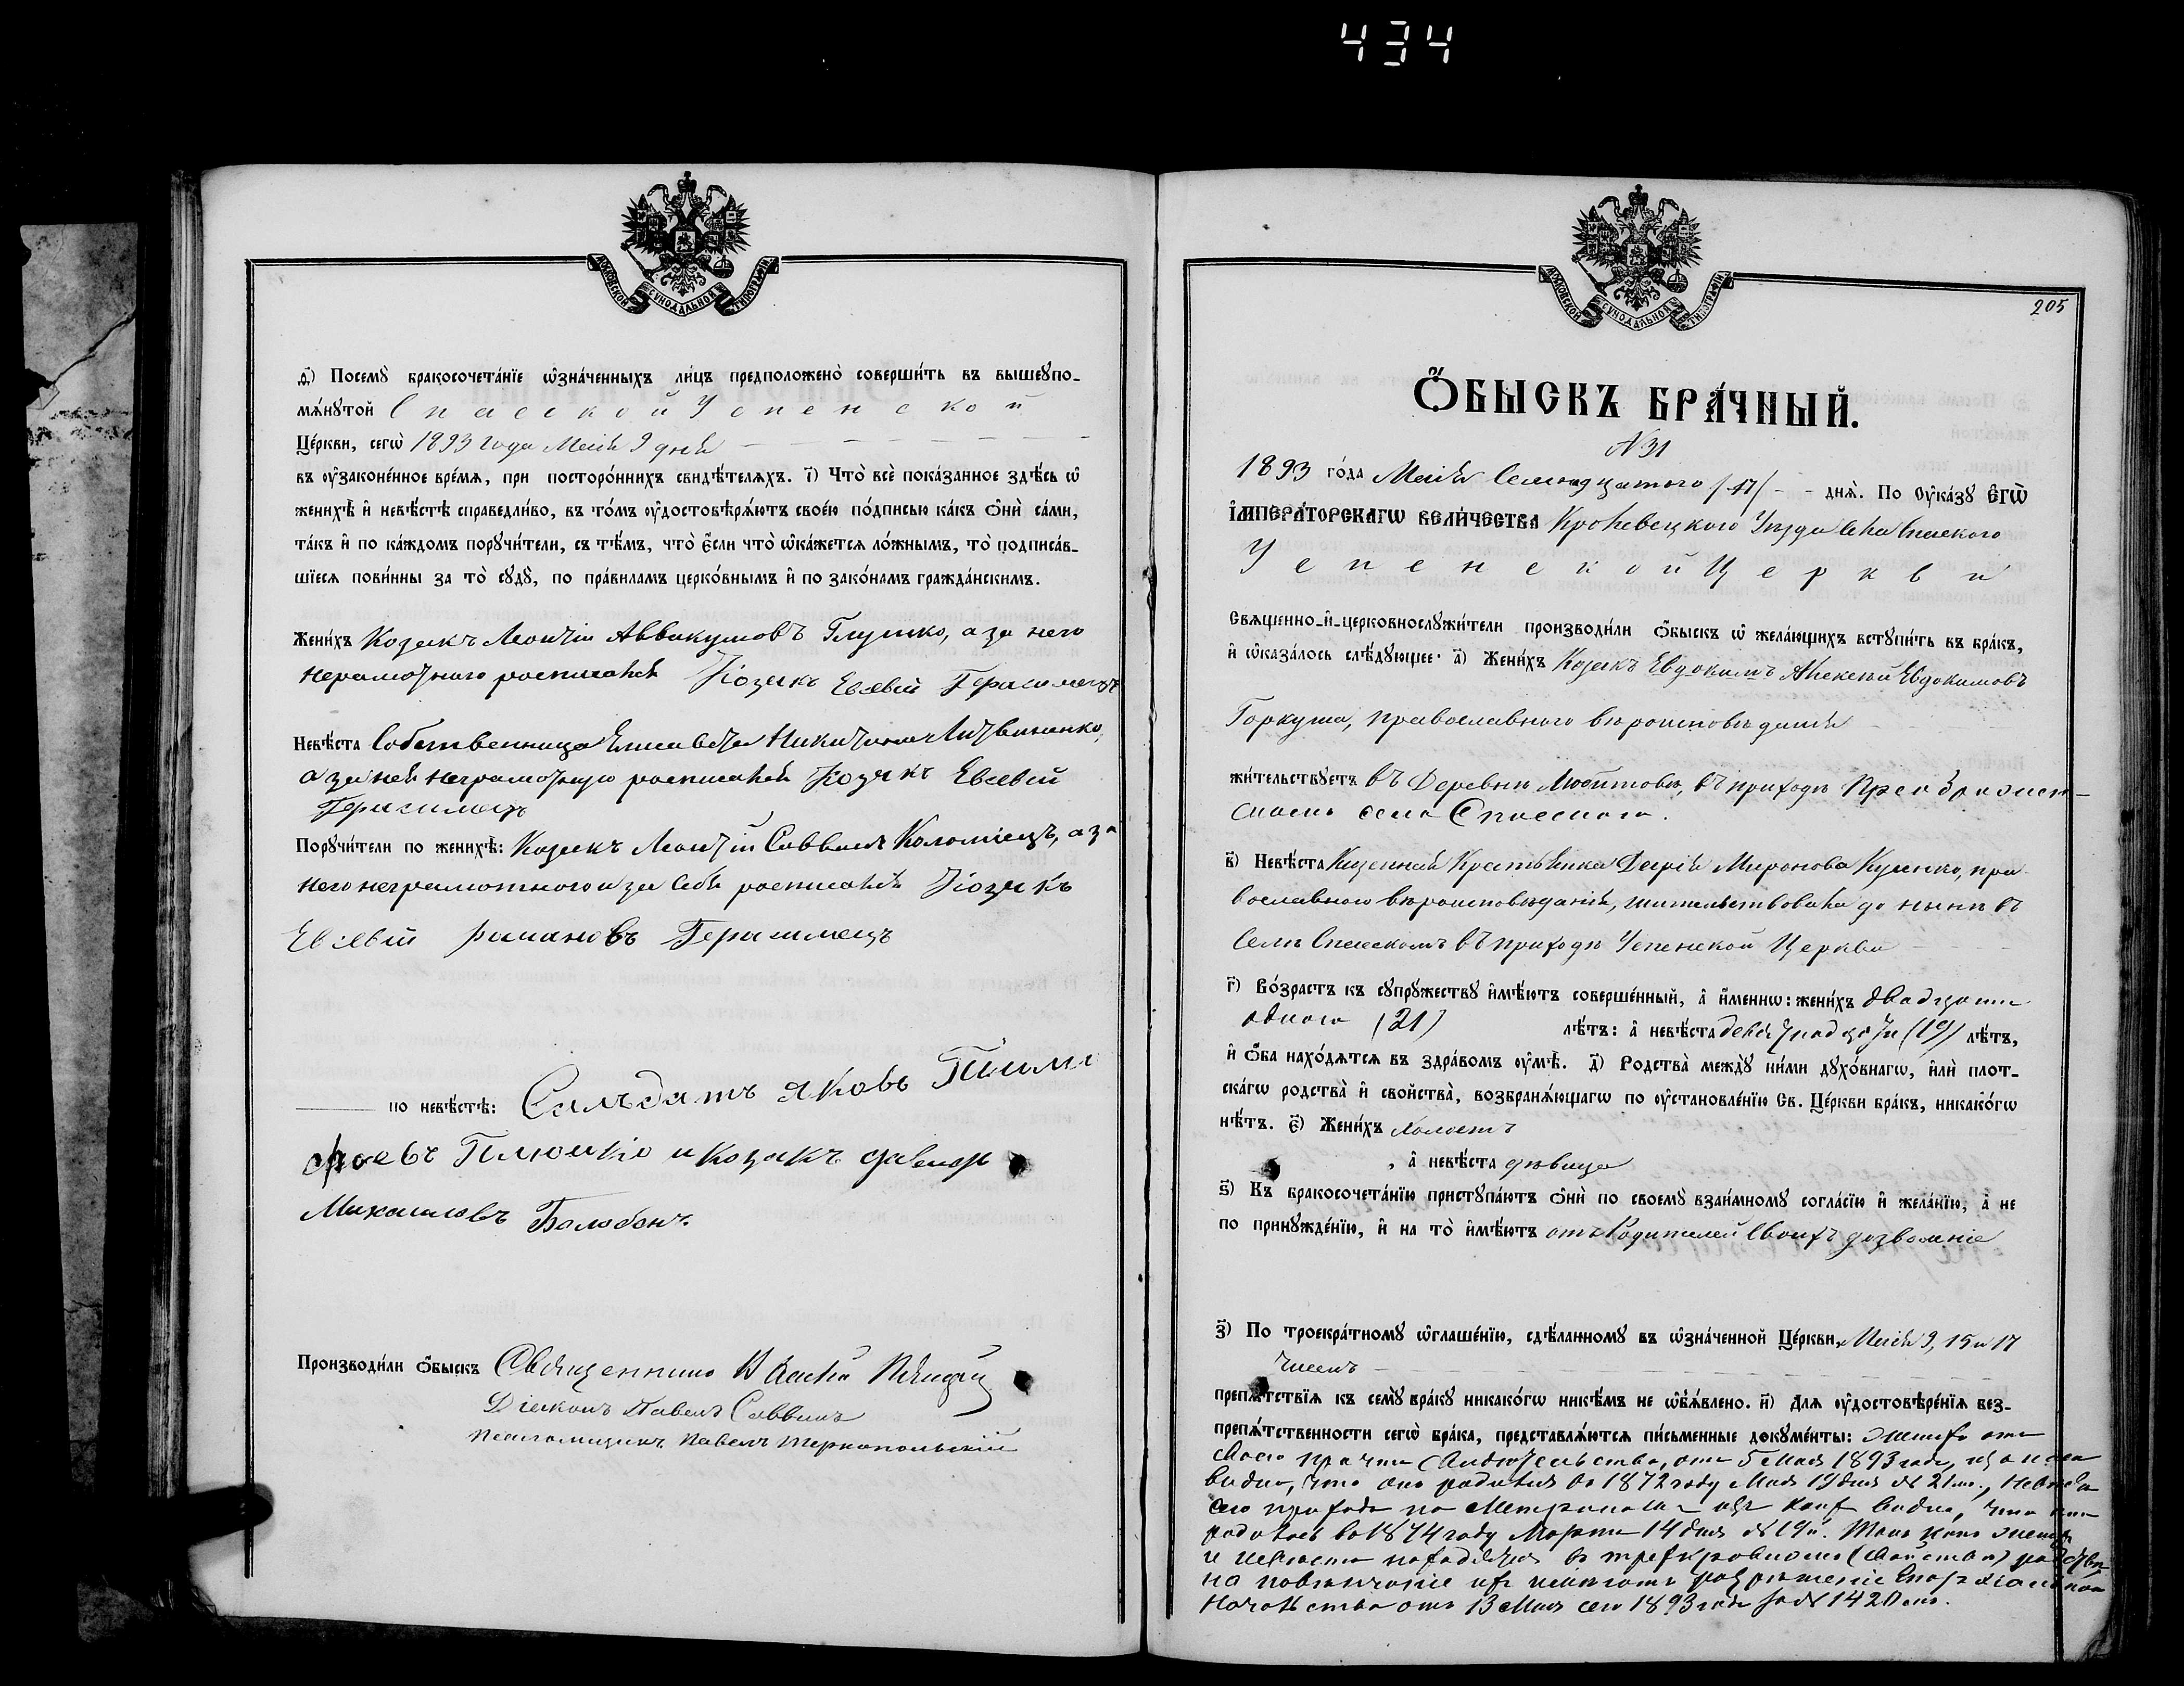 434
МОСКОВСКОЙ СѴНОДАЛЬНОЙ ТИПОГРАФІИ
ѳ҃) Посемꙋ̀ бракосочета́нїе ѡ҆зна́ченныхъ ли́цъ предположено̀ соверши́ть въ вышеꙋпо-
мѧ́нꙋтой Спасской Успенской
Це́ркви, сегѡ̀ 1893 года Маія 9 дня
въ ᲂу҆законе́нное вре́мѧ, при посторо́ннихъ свидѣ́телѧхъ. і҃) Что̀ всѐ пока́занное здѣ́сь ѡ҆
женихѣ̀ и҆ невѣ́стѣ справедли́во, въ то́мъ ᲂу҆достовѣрѧ́ютъ свое́ю по́дписью ка́къ ѻ҆нѝ са́ми,
та́къ и҆ по ка́ждомъ порꙋчи́тели, съ тѣ́мъ, что̀ є҆́сли что̀ ѡ҆ка́жетсѧ ло́жнымъ, то̀ подписа́в-
шїесѧ пови́нны за то̀ сꙋдꙋ̀, по пра́виламъ церко́внымъ и҆ по зако́намъ гражда́нскимъ.
Жени́хъ Козакъ Леонтій Аввакумовъ Глушко, а за него
неграмотнаго росписался Козакъ Евсевій Герасимецъ
Невѣ́ста Собственница Елисавета Никитина Литвиненко,
а за ней неграмотную росписался Козакъ Евсевій
Герасимецъ
Порꙋчи́тели по женихѣ̀: Козакъ Леонтій Саввинъ Коломіецъ, а за
него неграмотного и за себя росписался Козакъ
Евсевій Романовъ Герасимецъ
по невѣ́стѣ: Салъдатъ Яковъ
Глюшко и Козакъ
Михаиловъ Болобонъ
Производи́ли ѻ҆́быскъ Священникъ
Діаконъ Павелъ Саввинъ
Псаломщикъ Павелъ Тернопольскій
МОСКОВСКОЙ СѴНОДАЛЬНОЙ ТИПОГРАФІИ
205
Ѻ҆́БЫСКЪ БРА́ЧНЫЙ.
N 31
1893 го́да Маія Семнадцатого /17/ днѧ̀. По Оу҆ка́зꙋ Є҆гѡ̀
І҆мпера́торскагѡ Вели́чества Кролевецкого Уѣзда села Спаского
Успенской Церкви
Свѧще́нно-и҆-церковнослꙋжи́тели производи́ли ѻ҆́быскъ ѡ҆ жела́ющихъ встꙋпи́ть въ бра́къ,
и҆ ѡ҆каза́лось слѣ́дꙋющее: а҃) Жени́хъ Козакъ Евдокимъ Алексѣй Евдокимовъ
Горкуша, православного вѣроисповѣданія
жи́тельствꙋетъ въ Деревнѣ Любитовѣ, въ приходѣ Преображен-
скомъ села Спасскаго.
в҃) Невѣ́ста Казенная Крестьянка Дарія Миронова Куценко, пра-
вославного вѣроисповѣданія, жительствовала до нынѣ въ
Селѣ Спасскомъ въ приходѣ Успенской Церкви
г҃) Во́зрастъ къ сꙋпрꙋ́жествꙋ и҆мѣ́ютъ соверше́нный, а҆ и҆́меннѡ: жени́хъ двадцати
одного (21) лѣ́тъ: а҆ невѣ́ста девятнадцати (19) лѣ́тъ,
и҆ ѻ҆́ба нахо́дѧтсѧ въ здра́вомъ ᲂу҆мѣ̀. д҃) Родства̀ междꙋ̀ ни́ми дꙋхо́внагѡ, и҆лѝ плот-
ска́гѡ родства̀ и҆ свойства̀, возбранѧ́ющагѡ по ᲂу҆становле́нїю Св. Це́ркви бра́къ, никако́гѡ
нѣ́тъ. є҃) Жени́хъ холостъ
, а҆ невѣ́ста дѣвица
ѕ҃) Къ бракосочета́нїю пристꙋпа́ютъ ѻ҆нѝ по своемꙋ̀ взаи́мномꙋ согла́сїю и҆ жела́нїю, а҆ не
по принꙋжде́нїю, и҆ на то̀ и҆мѣ́ютъ отъ Родителей своихъ дозволеніе
з҃) По троекра́тномꙋ ѡ҆глаше́нїю, сдѣ́ланномꙋ въ ѡ҆зна́ченной Це́ркви, Маія 9, 15 и 17
чиселъ
препѧ́тствїѧ къ семꙋ̀ бра́кꙋ никако́гѡ никѣ́мъ не ѡ҆б̾ѧ́влено. и҃) Длѧ ᲂу҆достовѣре́нїѧ без-
препѧ́тственности сегѡ̀ бра́ка, представлѧ́ютсѧ пи́сьменные докꙋме́нты: жениху отъ
своего причта свидѣтельство, отъ 5 Мая 1893 года, изъ коего
видно, что онъ родился въ 1872 году Мая 19 дня № 21 м., невѣста
сего прихода по Метрикамъ изъ коихъ видно, что она
родилась въ 1874 году Марта 14 дня № 19 й. Такъ какъ женихъ
и невѣста находятся въ трехкровномъ (свойствѣ) родствѣ
на повѣнчаніе ихъ имѣютъ разрѣшеніе Епархіальнаго
Началства отъ 13 Мая сего 1893 года за № 1420 мъ.